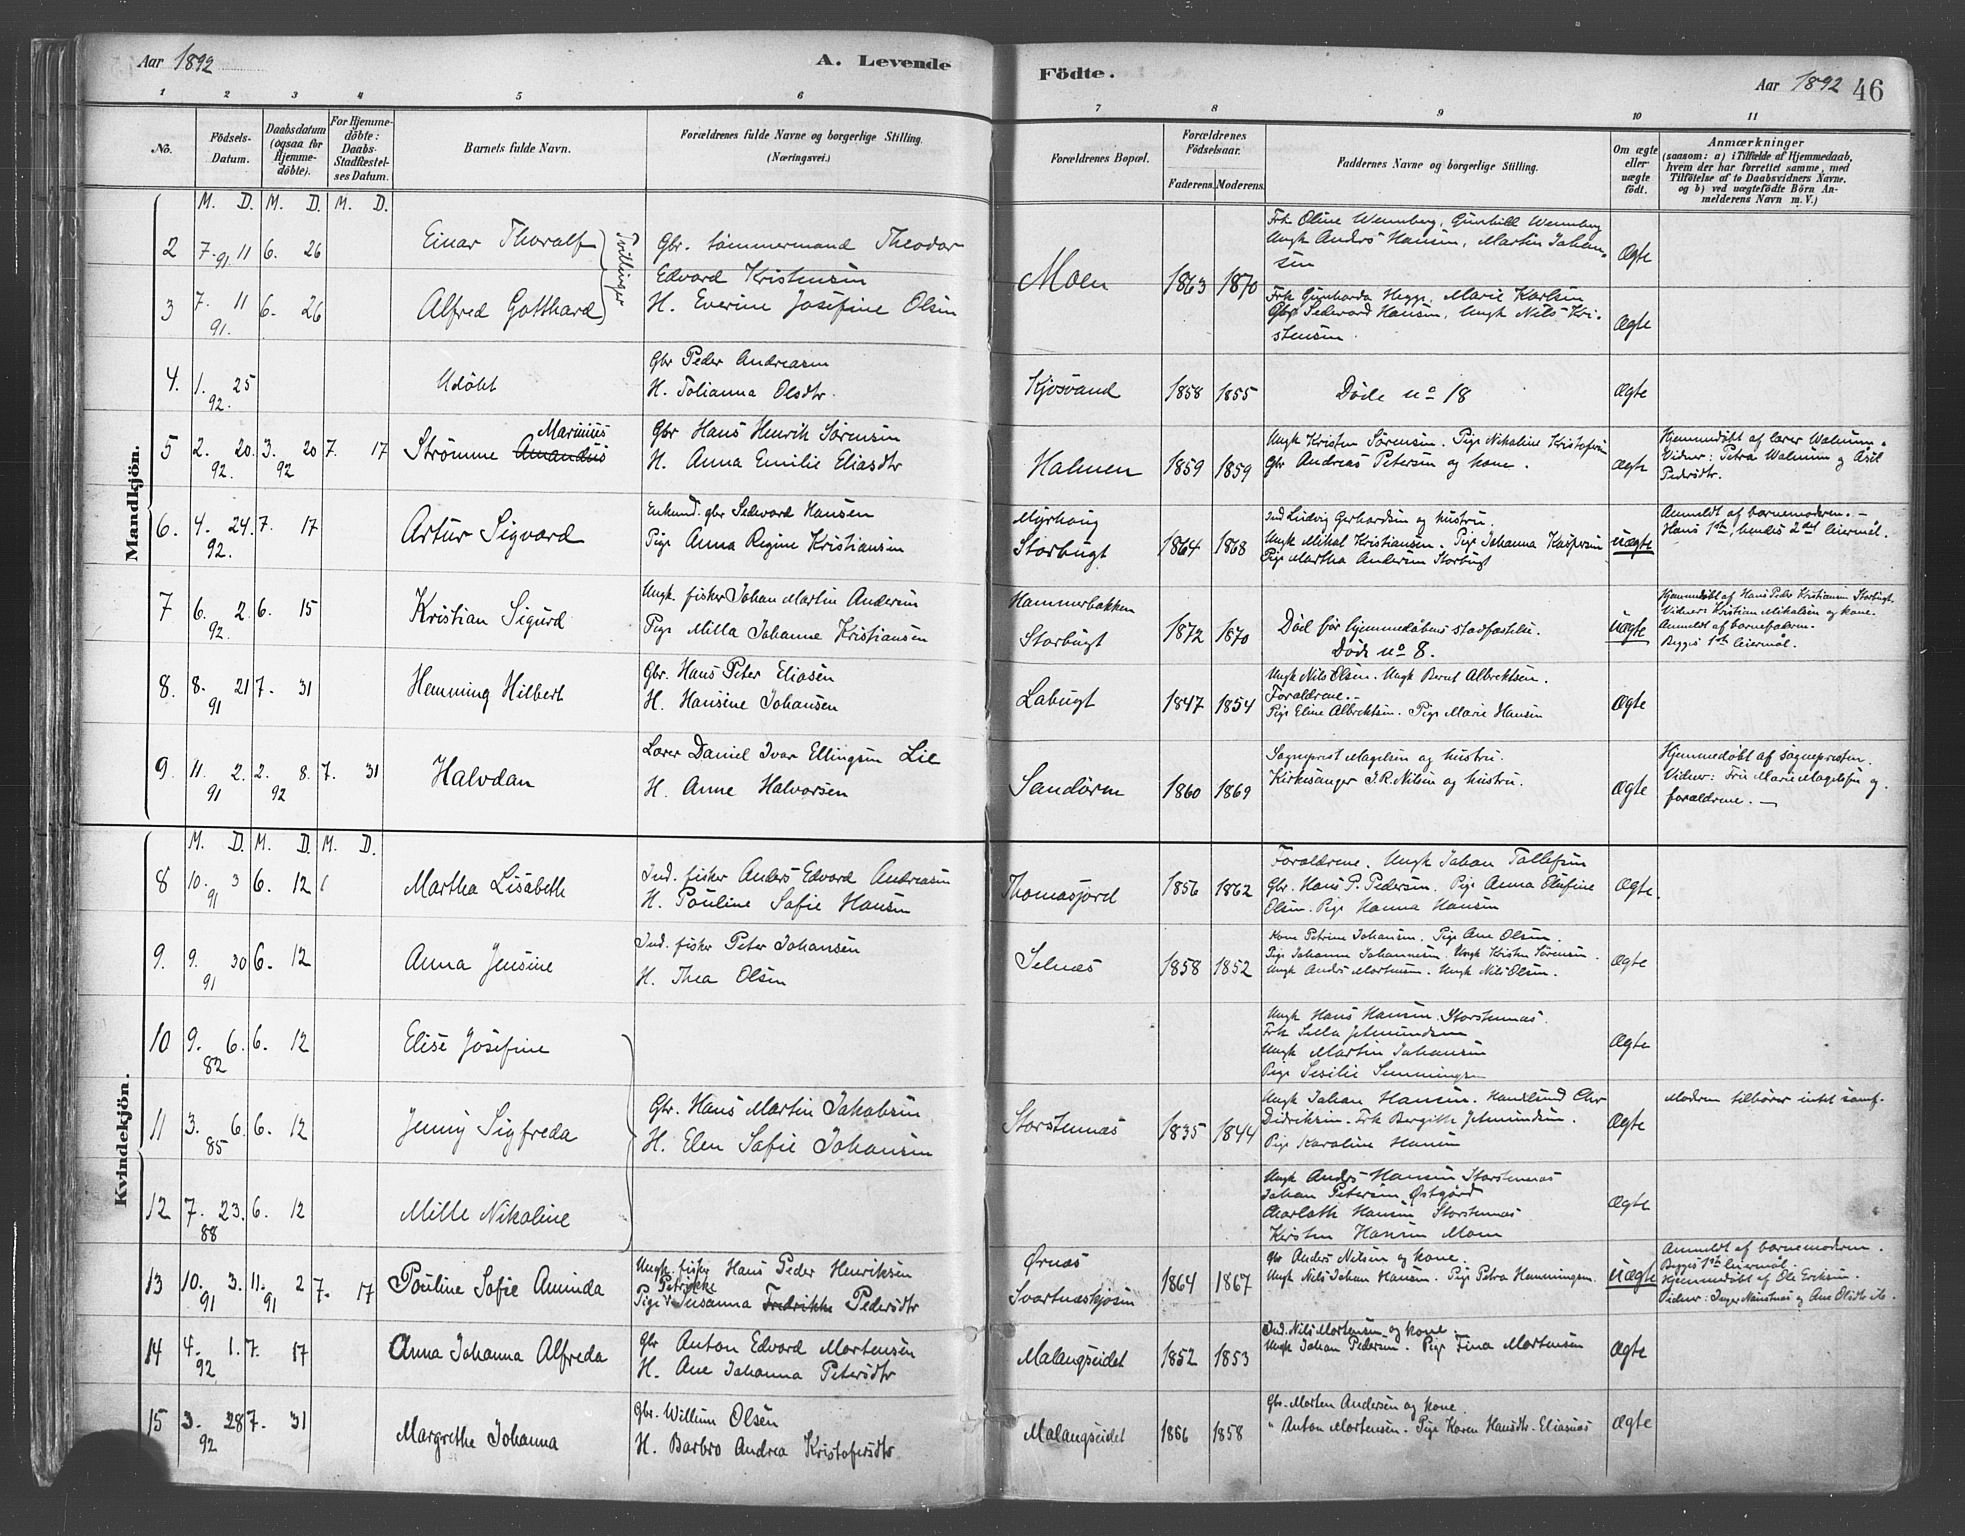 Aar 1892
A. Levende
Födte.
Aar 1892 46
1 2 3 4 5 6 7 8 9 10 11
No.
Födsels-Datum.
Daabsdatum (ogsaa for Hjemmedöbte).
For Hjemmedöbte: Daabs-Stadfæstelses Datum.
Barnets fulde Navn.
Forældrenes fulde Navne og borgerlige Stilling.
(Næringsvei.)
Forældrenes Bopæl.
Forældrenes Födselsaar.
Faderens. Moderens.
Faddernes Navne og borgerlige Stilling.
Om ægte eller uægte födt.
Anmærkninger
(saasom: a) i Tilfælde af Hjemmedaab, hvem der har forrettet samme, med Tilföielse af to Daabsvidners Navne. og b) ved uægtefödte Börn Anmelderens Navn m. V.)
Mandkjön.
M. D. M. D. M. D.
2 7. 11 91 6. 26 Einar Thoralf
Tvillinger
Gbr. tømmermand Theodor
Edvard Kristensen
H. Everine Josefine Olsen
Moen 1863 1870
Frk Oline Wennberg, Gunhild Wennberg
Ungk Anders Hansen, Martin Johansen
Ægte
3 7. 11 91. 6. 26 Alfred Gotthard
Frk Gunharda Hegge, Marie Karlsen
Gbr Sedevard Hansen, Ungk Nils Kristensen
Ægte
4. 1. 25 92. Udøbt
Gbr Peder Andreasen
H. Tolianna Olsdtr.
Kjosvand 1858 1855
Døde no 18
Ægte
5 2. 20. 92. 3. 20 92 7. 17 Strømme Amandus Marinius
Gbr Hans Henrik Sørensen
H. Anna Emilie Eliasdtr
Halmen 1859 1859
Ungk Kristen Sørensen. Pige Nikoline Kristofersen
Gbr Andreas Petersen og kone.
Ægte
Hjemmedøbt af lærer Walnum.
Vidner: Petra Walnum og Åsel Pedersdtr.
6. 4. 24. 92. 7. 17 Artur Sigvard
Enkemd. gbr Sedevard Hansen
Pige Anna Regine Kristiansen
Myrhaug
Storbugt 1864 1868
Ind Ludvig Gerhardsen og hustru.
Ungk Mikal Kristiansen. Pige Johanna Kaspersen
Pige Martha Andersen Storbugt
uægte
Anmeldt af barnemoderen.
Hans 1ste, hendes 2det leiermål.
7 6. 2. 92. 6. 15 Kristian Sigurd
Ungk. fisker Johan Martin Andersen
Pige Milla Johanne Kristiansen
Hammerbakken
Storbugt 1872 1870
Død før hjemmedøbens stadfæstelse.
Døde no 8.
Uægte
Hjemmedøbt af Hans Peder Kristiansen Storbugt.
Vidner: Kristian Mikalsen og kone.
Anmeldt af barnefaderen.
Begges 1ste leiermål.
8. 8. 21 91 7. 31 Hemming Hilbert
Gbr. Hans Peter Eliasen
H. Hansine Johansen
Labugt 1847 1854
Ungk Nils Olsen. Ungk Bernt Albrektsen.
Forældrene.
Pige Eline Albrektsen. Pige Marie Hansen
Ægte
9. 11. 2. 91 2. 8. 92 7. 31 Halvdan
Lærer Daniel Ivar Ellingsen Lie
H. Anne Halvorsen
Sandøren 1860 1869
Sogneprest Magelsen og hustru.
Kirkesanger J.R. Nilsen og hustru.
Ægte
Hjemmedøbt af sognepresten.
Vidner: Fru Marie Magelsen og forældrene.
Kvindekjön.
M. D. M. D. M. D.
8 10. 3 91 6. 12 Martha Lisabeth
Ind. fisker Anders Edvard Andreasen
H. Pouline Sofie Hansen
Thomasjord 1856 1862
Forældrene. Ungk Johan Tollefsen
Gbr. Hans P. Pedersen. Pige Anna Olufine
Olsen. Pige Hanna Hansen
Ægte.
9. 9. 30 91 6. 12 Anna Jensine
Ind. fisker Peter Johansen
H. Thea Olsen
Selnæs 1858 1852
Kone Petrine Johansen. Pige Ane Olsen.
Pige Johanna Johannesen. Ungk Kristen Sørensen.
Ungk Anders Mortensen. Ungk Nils Olsen.
Ægte
10 9. 6. 82 6. 12 Elise Josefine
Ungk Hans Hansen Storstennæs.
Ungk Martin Johansen
Ægte
11 3. 6. 85 6. 12 Jenny Sigfreda
Gbr. Hans Martin Jakobsen
H. Elen Sofie Johansen
Storstennæs 1835 1844
Ungk Johan Hansen. Handlende Chr
Didriksen. Frk Bergithe
Pige Karoline Hansen
Ægte
Modren tilhører intet samf.
12 7. 23. 88 6. 12 Mille Nikoline
Ungk Anders Hansen Storstennæs
Johan Petersen Østgård
Charlotte Hansen Storstennæs
Kirsten Hansen Moen
Ægte
13 10. 3. 91 11. 2 91 7. 17 Pouline Sofie Aminda
Ungk. fisker Hans Peder Henriksen
Petrikke
Pige Susanna Fredrikke Pedersdtr
Ørnæs
Svartnæskjosen 1864 1867
Gbr Anders Nilsen og kone.
Ungk Nils Johan Hansen. Pige Petra Hemmingsen.
Uægte
Anmeldt af barnemoderen.
Begges 1ste leiermål.
Hjemmedøbt af Ole Eriksen.
14 4. 1. 92 7. 17 Anna Johanna Alfreda
Gbr Anton Edvard Mortensen
H. Ane Johanna Petersdtr
Malangseidet 1852 1853
Ind. Nils Mortensen og kone.
Ungk Johan Pedersen. Pige Fina Mortensen
Ægte
15 3. 28 92 7. 31 Margrethe Johanna
Gbr. Willum Olsen
H. Barbro Andrea Kristofersdtr
Malangseidet 1866 1858
Gbr. Morten Andersen og kone.
" Anton Mortensen. Pige Karen Hansdtr. Eliasnæs
Ægte